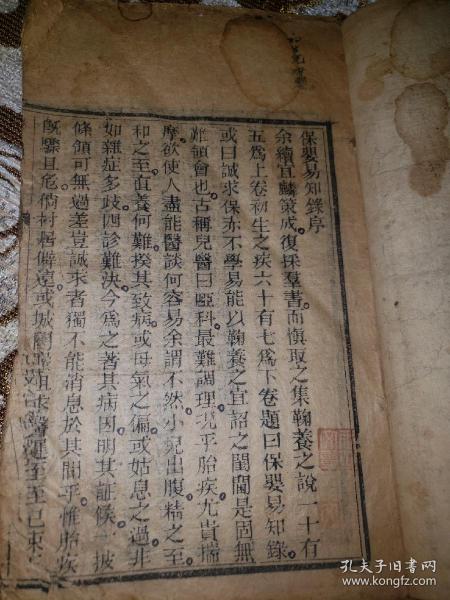 保嬰易知錄序
余續宜麟策成復採羣書而慎取之集鞠養之說一十有
五爲上卷初生之疾六十有七爲下卷題曰保嬰易知錄
或曰誠求保赤不學易能以鞠養之宜詔之閨閫是固無
難領會也古稱兒醫曰啞科最難調理況乎胎疾尤貴揣
摩欲使人盡能醫談何容易余謂不然小兒出腹精之至
和之至直養何難揆其致病或母氣之偏或姑息之過非
如雜症多歧四診難決今爲之著其病因明其証候一披
條領可無過差豈誠求者獨不能消息於其間乎惟胎疾
既驟且危倘村居僻遠或城闉
孔夫子旧书网
www.kongfz.com